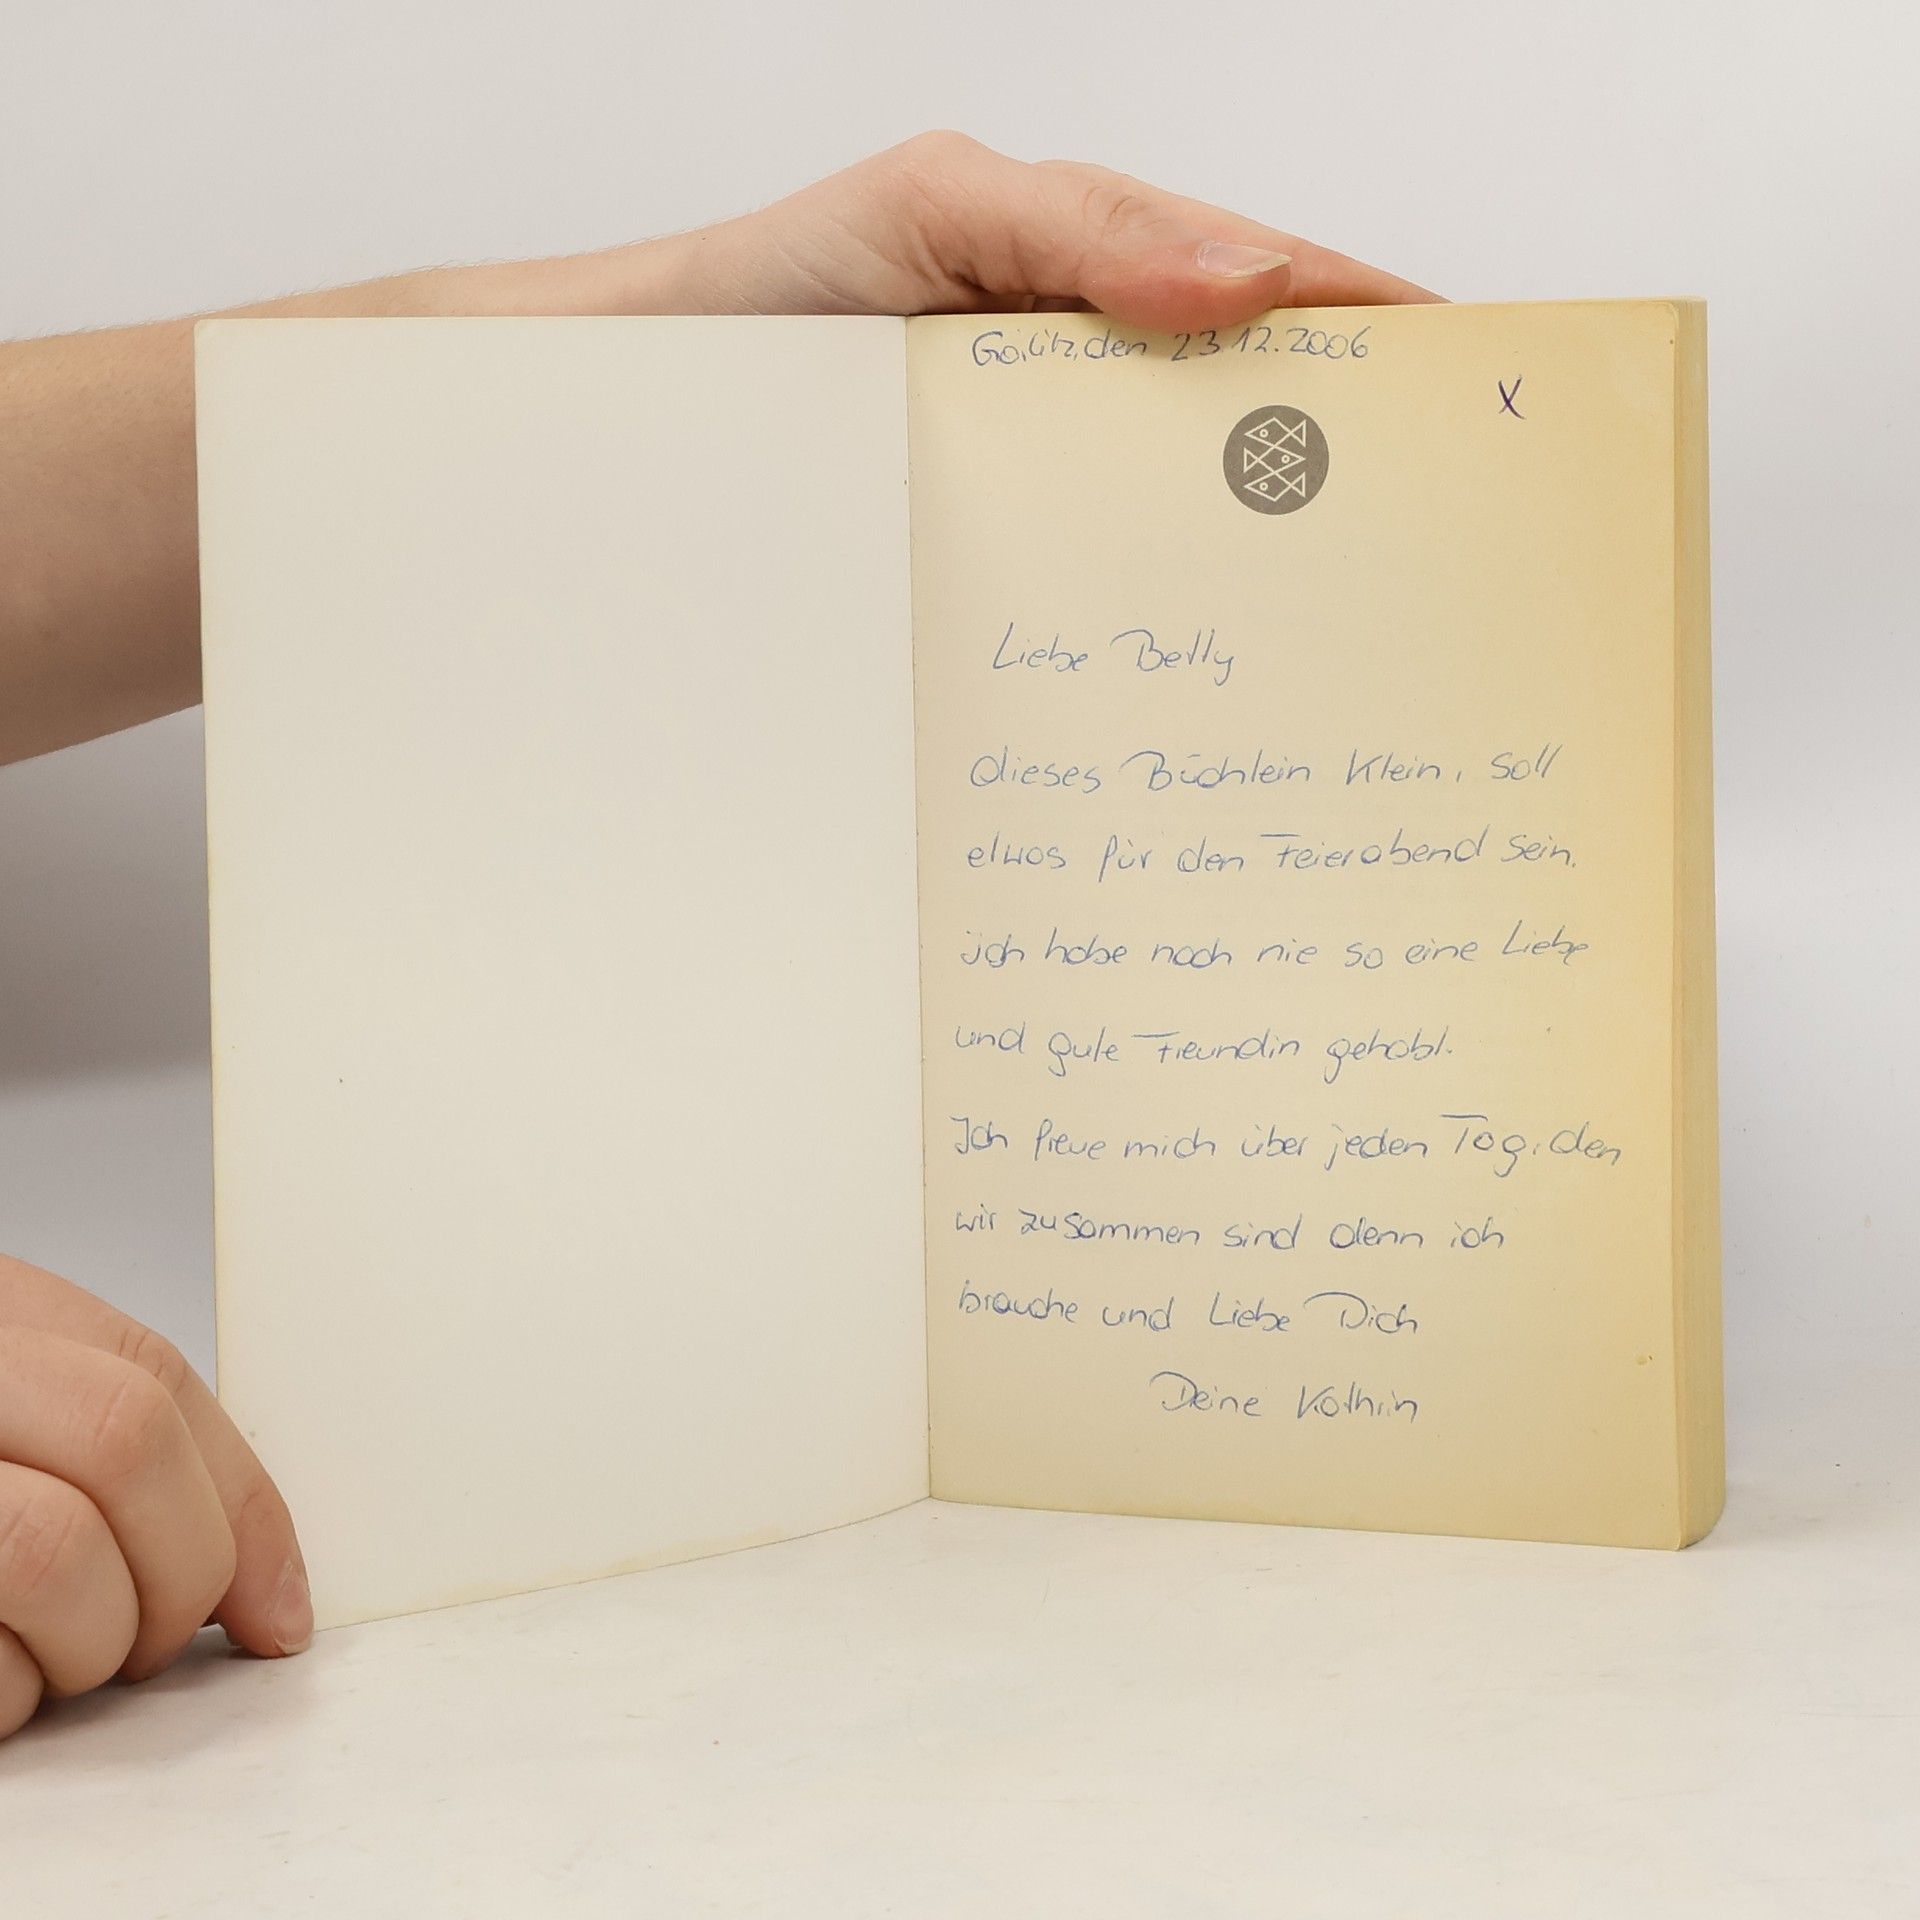 Görlitz, den 23.12.2006
X
Liebe Betty
dieses Büchlein Klein, soll
etwas für den Feierabend sein.
ich habe noch nie so eine Liebe
und gute Freundin gehabt.
Ich freue mich über jeden Tag, den
wir zusammen sind denn ich
brauche und Liebe Dich
Deine Kathrin